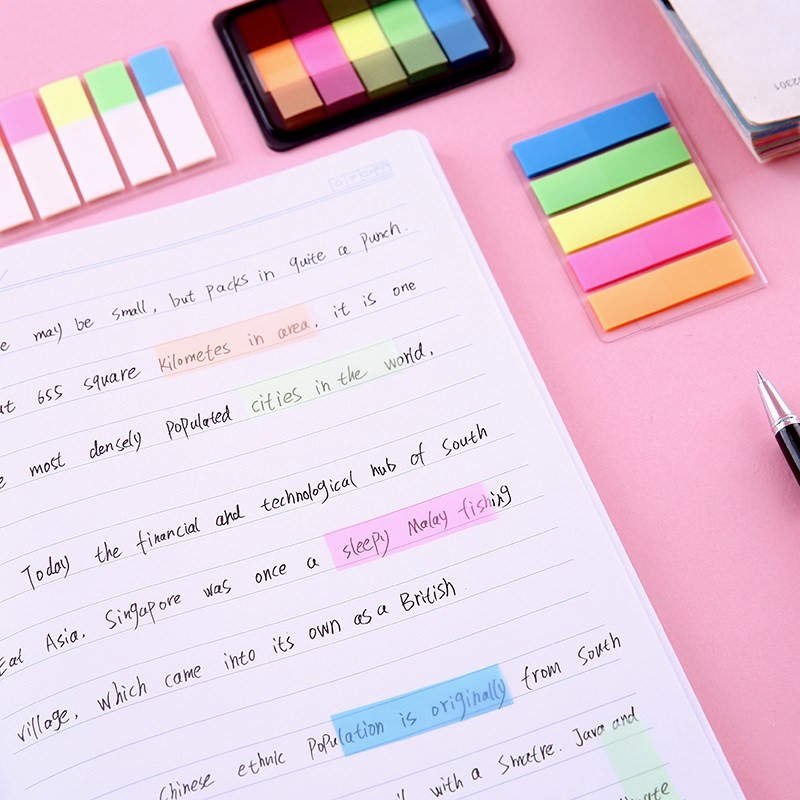 may be small, but packs in quite a punch.
655 square kilometes in area. it is one
most densely populated cities in the world.
Today the financial and technological hub of South
Eat Asia. Singapore was once a sleepy Malay fishing
village, which came into its own as a British
Chinese ethnic population is originally from South
with a Smatre. Java and
2301